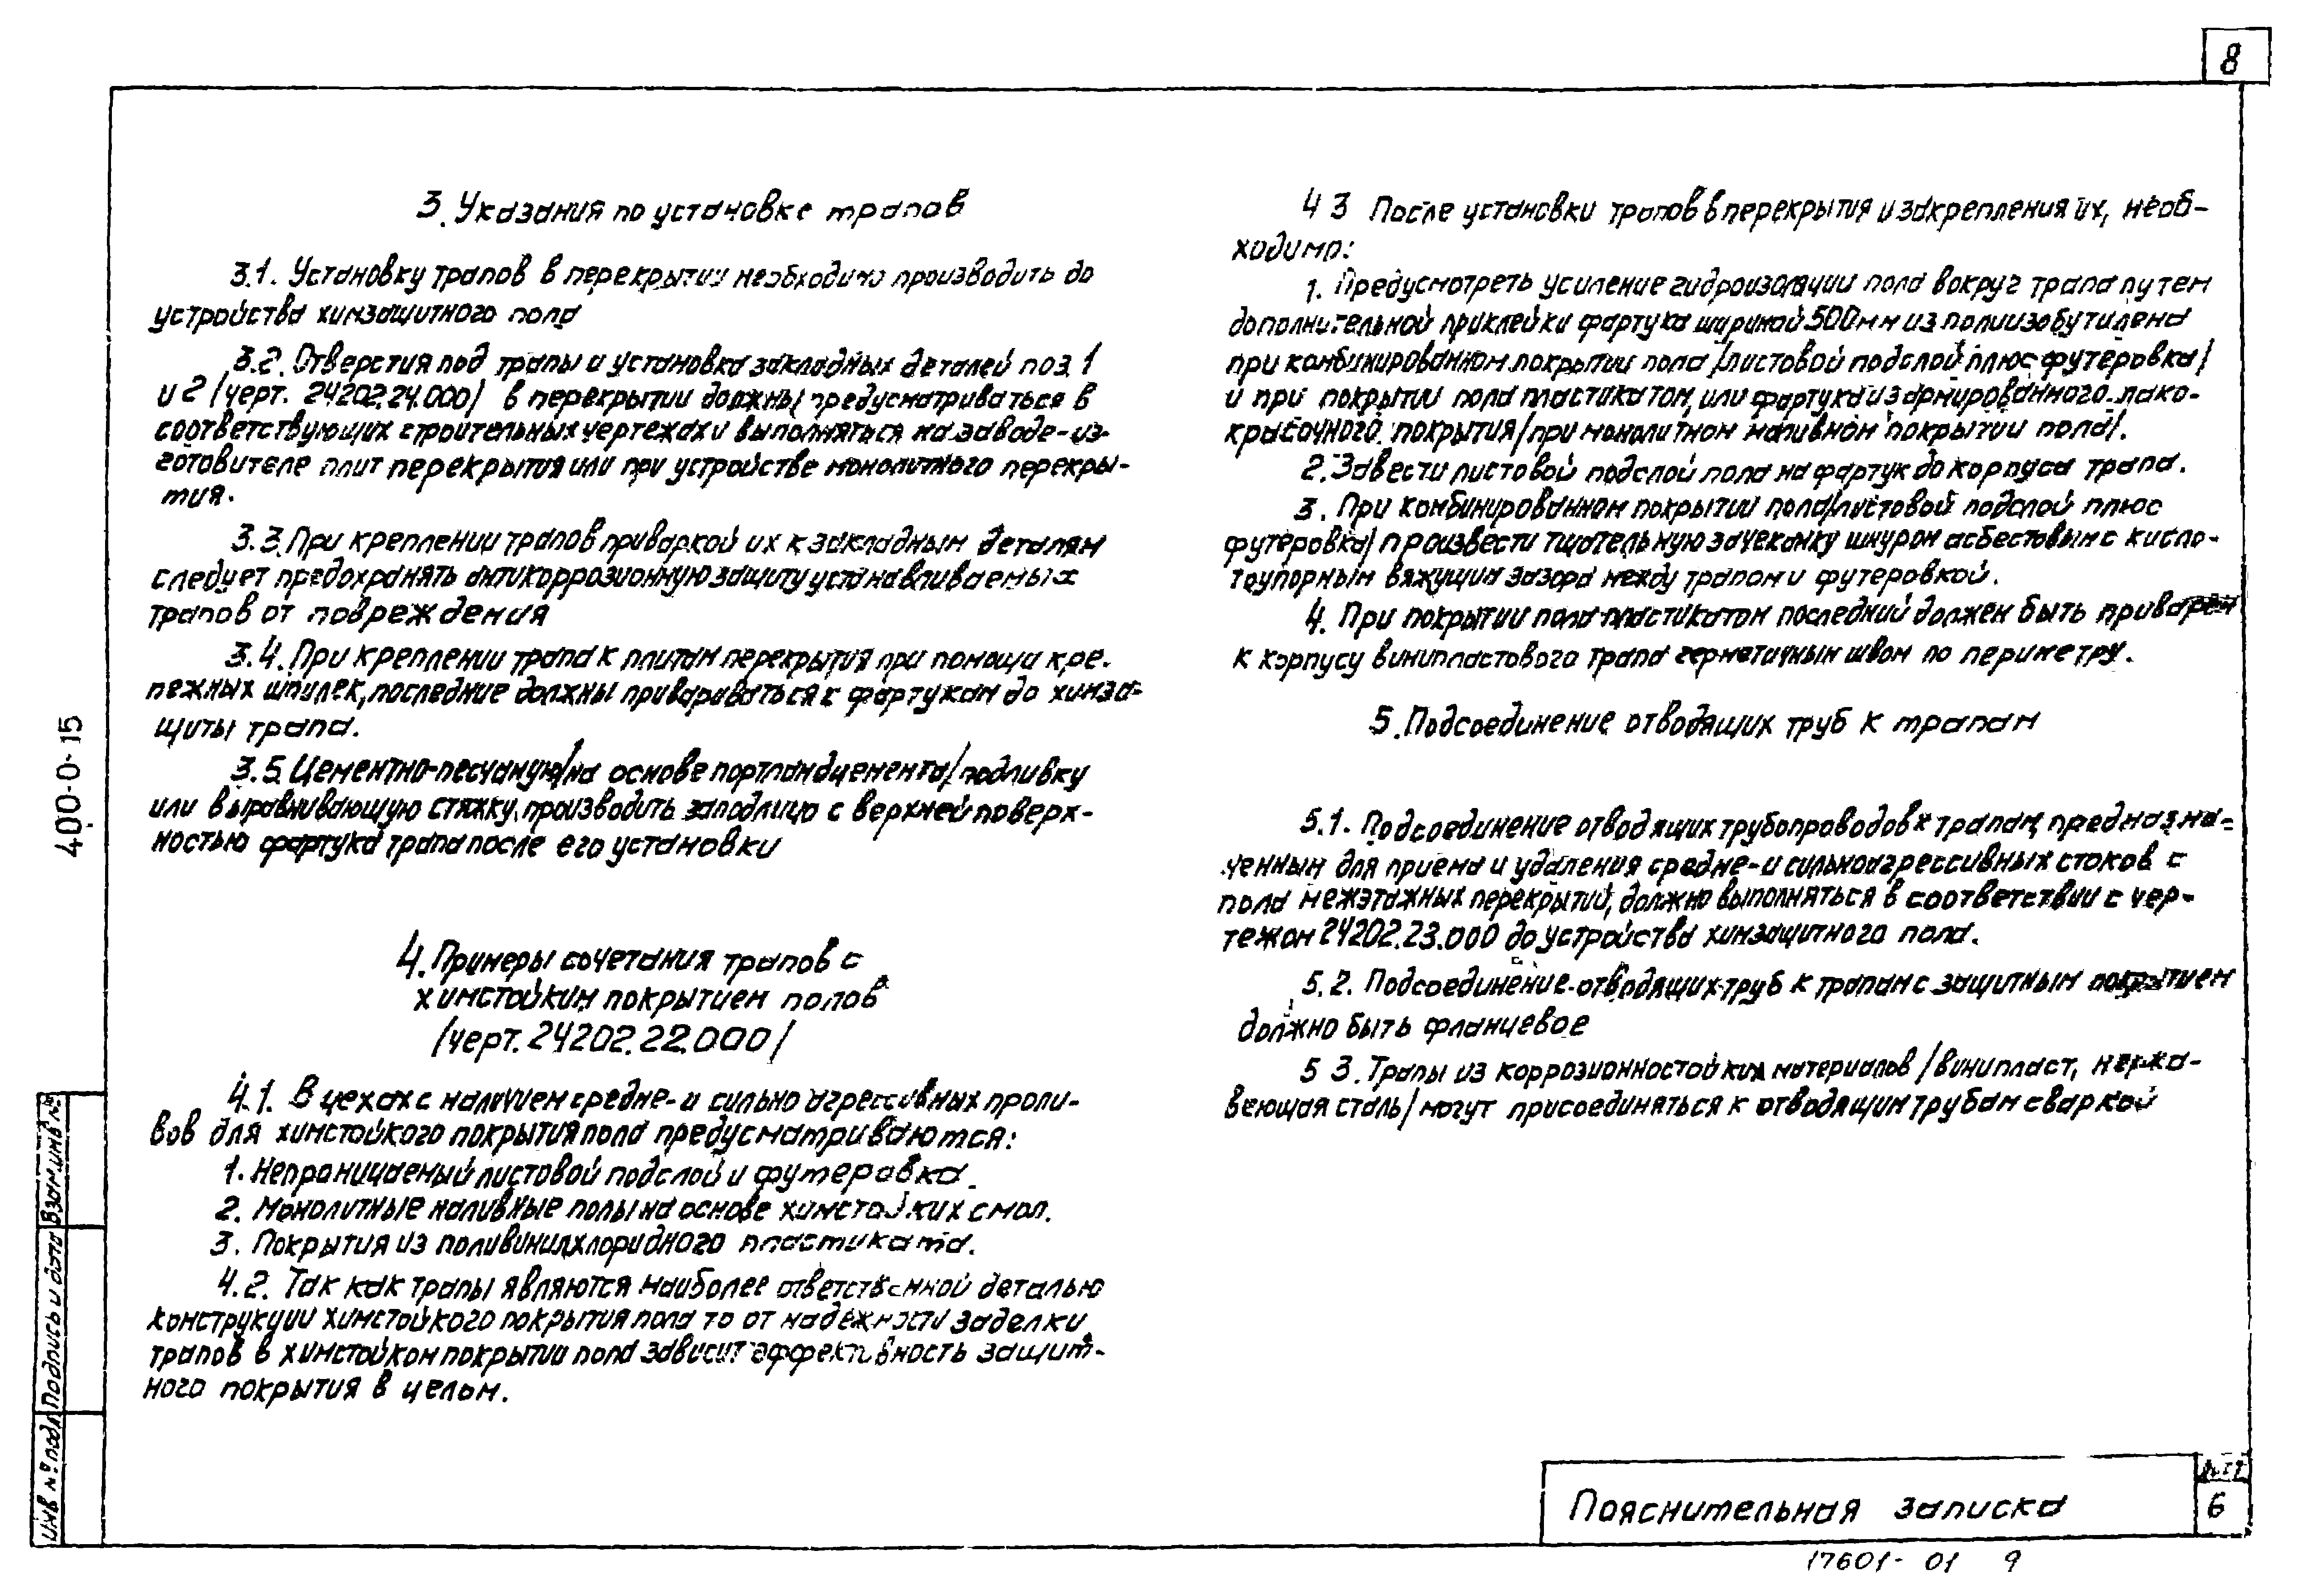 8
3. Указания по установке трапов
3.1. Установку трапов в перекрытии необходимо производить до
устройства химзащитного пола
3.2. Отверстия под трапы и установка закладных деталей поз. 1
и 2 /черт. 24202.24.000/ в перекрытии должны предусматриваться в
соответствующих строительных чертежах и выполняться на заводе-из-
готовителе плит перекрытия или при устройстве монолитного перекры-
тия.
3.3. При креплении трапов приваркой их к закладным деталям
следует предохранять антикоррозионную защиту устанавливаемых
трапов от повреждения
3.4. При креплении трапа к плитам перекрытия при помощи кре-
пежных шпилек, последние должны привариваться к фартукам до химза-
щиты трапа.
3.5. Цементно-песчаную /на основе портландцемента/ подливку
или выравнивающую стяжку, производить заподлицо с верхней поверх-
ностью фартука трапа после его установки
4. Примеры сочетания трапов с
химстойким покрытием полов
/черт. 24202.22.000/
4.1. В цехах с наличием средне- и сильно агрессивных проли-
вов для химстойкого покрытия пола предусматриваются:
1. Непроницаемый листовой подслой и футеровка.
2. Монолитные наливные полы на основе химстойких смол.
3. Покрытия из поливинилхлоридного пластиката.
4.2. Так как трапы являются наиболее ответственной деталью
конструкции химстойкого покрытия пола то от надежности заделки
трапов в химстойком покрытии пола зависит эффективность защит-
ного покрытия в целом.
4 3 После установки трапов в перекрытия и закрепления их, необ-
ходимо:
1. Предусмотреть усиление гидроизоляции пола вокруг трапа путем
дополнительной приклейки фартука шириной 500мм из полиизобутилена
при комбинированном покрытии пола /листовой подслой плюс футеровка/
и при покрытии пола пластикатом, или фартука из армированного лако-
красочного покрытия /при монолитном наливном покрытии пола/.
2. Завести листовой подслой пола на фартук до корпуса трапа.
3. При комбинированном покрытии пола /листовой подслой плюс
футеровка/ произвести тщательную зачеканку шнуром асбестовым с кисло-
тоупорным вяжущим зазора между трапом и футеровкой.
4. При покрытии пола пластикатом последний должен быть приварен
к корпусу винипластового трапа герметичным швом по периметру.
5. Подсоединение отводящих труб к трапам
5.1. Подсоединение отводящих трубопроводов к трапам, предназна-
ченным для приема и удаления средне- и сильноагрессивных стоков с
пола межэтажных перекрытий, должно выполняться в соответствии с чер-
тежом 24202.23.000 до устройства химзащитного пола.
5.2. Подсоединение отводящих труб к трапам с защитным покрытием
должно быть фланцевое
5 3. Трапы из коррозионностойких материалов /винипласт, нержа-
веющая сталь/ могут присоединяться к отводящим трубам сваркой
400-0-15
Взам.инв.№
Подпись и дата
Инв № подл
Пояснительная записка
Лист
6
17601-01 9